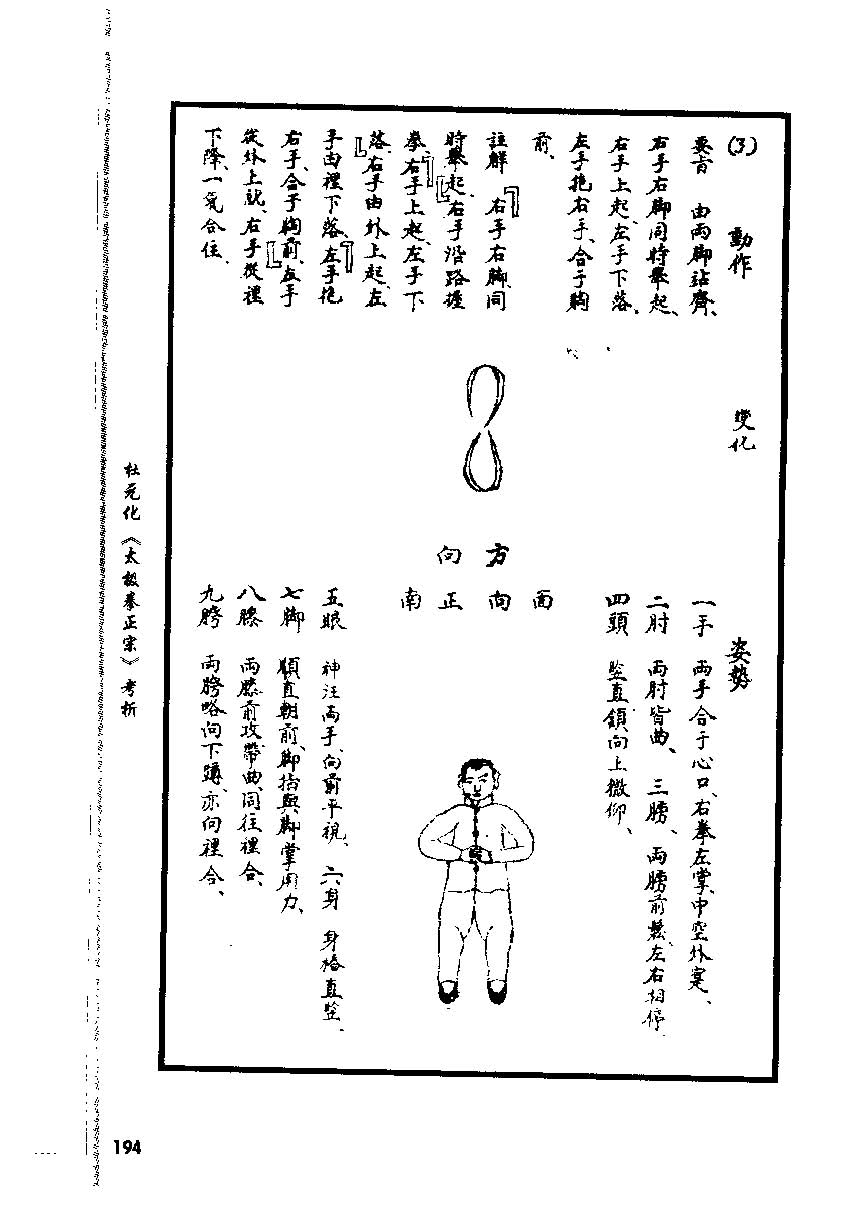 (3) 動作
要旨 由両脚站齊、
右手右脚同時舉起、
右手上起、左手下落、
左手抱右手、合于胸
前、
註解 「右手右脚同
時舉起」、「右手沿路握
拳、右手上起、左手下
落」、右手由外上起、左
手由裡下落、「左手抱
右手、合于胸前」、左手
從外上就、右手從裡
下降、一氣合住、
變化
方向
面向正南
姿勢
一手 両手合于心口、右拳左掌、中空外寔、
二肘 両肘皆曲、三膀、両膀前鬆、左右相停
四頭 竪直、頂向上微仰、
五眼 神注両手、向前平視、六身 身樁直竪、
七脚 順直朝前、脚指與脚掌用力、
八膝 両膝前攻帶曲、同往裡合、
九胯 両胯略向下蹲、亦向裡合、
杜元化《太极拳正宗》考析
194